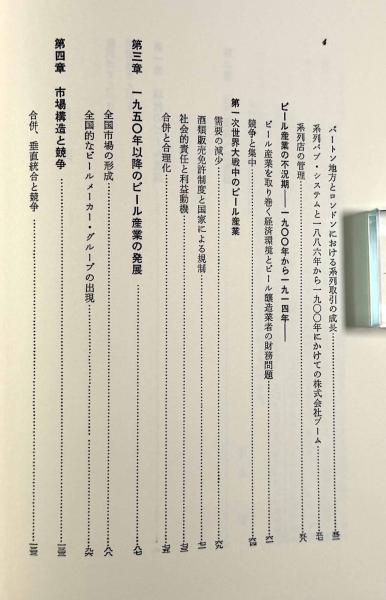 4
バートン地方とロンドンにおける系列取引の成長
系列パブ・システムと一八八六年から一九〇〇年にかけての株式会社ブーム
系列店の管理
ビール産業の不況期——一九〇〇年から一九一四年——
ビール産業を取り巻く経済環境とビール醸造業者の財務問題
競争と集中
第一次世界大戦中のビール産業
需要の減少
酒類販売免許制度と国家による規制
社会的責任と利益動機
合併と合理化
第三章 一九五〇年以降のビール産業の発展
全国市場の形成
全国的なビールメーカー・グループの出現
第四章 市場構造と競争
合併、垂直統合と競争